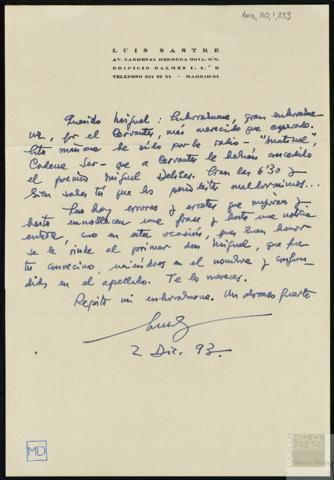 AMD, 110, 1, 233
LUIS SASTRE
AV. CARDENAL HERRERA ORIA, S/N.
EDIFICIO BALMES I. 5.º B
TELEFONO 201 24 24 - MADRID-34
Querido Miguel: Enhorabuena, gran enhorabue
na, por el Cervantes, más merecido que esperado.
Esta mañana he oído por la radio - "matinal",
Cadena Ser - que a Cervantes le habían concedido
el premio Miguel Delibes. Eran las 6'30 y
bien sabes tú que los periodistas madrugamos...
Las hay errores y erratas que mejoran y
hasta ennoblecen una frase y hasta una noticia
entera, como en esta ocasión, pues buen honor
se le rinde al primer don Miguel, que fue
tu convecino, uniéndoos en el nombre y confun
didos en el apellido. Te lo mereces.
Repito mi enhorabuena. Un abrazo fuerte
Luis
2 Dic. 93.
MD